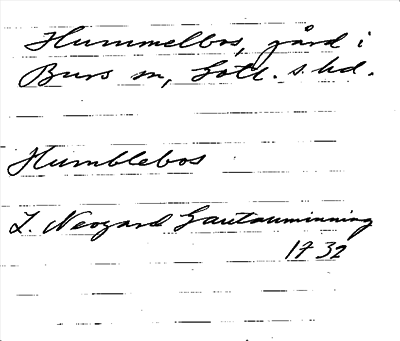 Hummelbos, gård i
Burs sn, Gotl. s. hd.
Humblebos
L. Neogard Gautauminning
1732